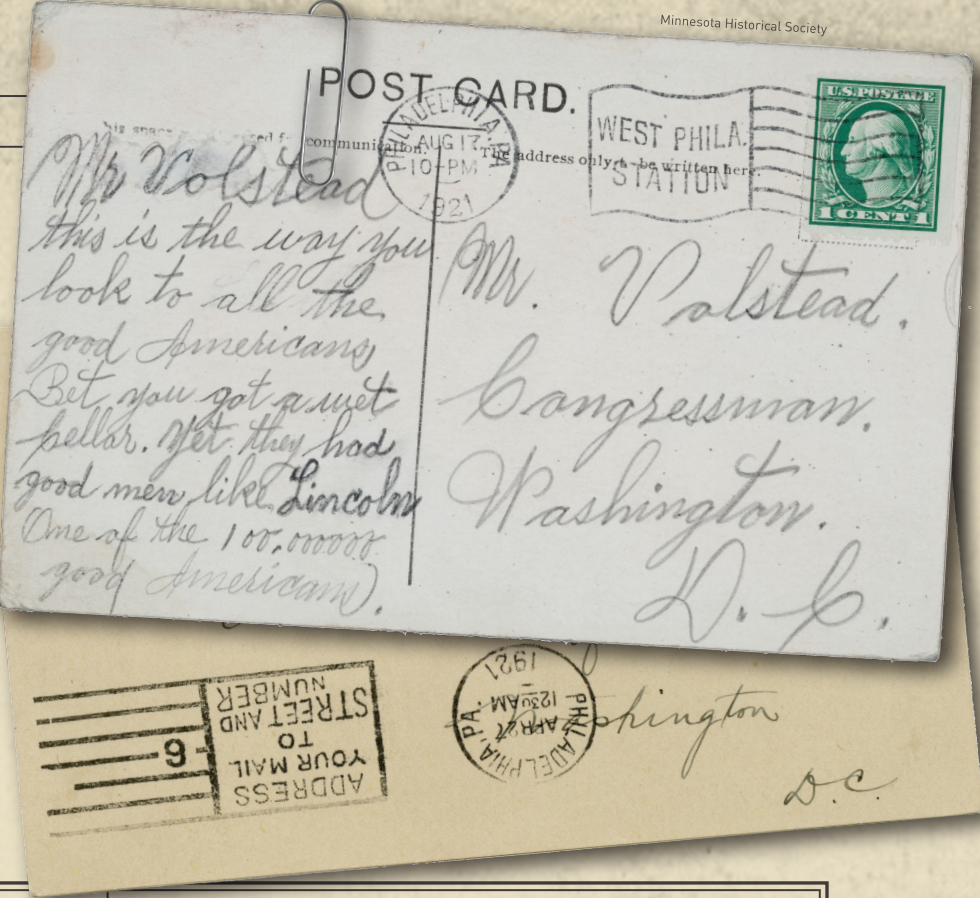 Minnesota Historical Society
POST CARD.
communication.
The address only to be written here.
PHILADELPHIA, PA.
AUG 17
10-PM
1921
WEST PHILA.
STATION
U.S. POSTAGE
1 CENT 1
Mr Volstead
this is the way you
look to all the
good Americans
Bet you got a wet
cellar. Yet they had
good men like Lincoln
One of the 100,000000
good Americans.
Mr. Volstead.
Congressman.
Washington.
D. C.
ADDRESS
YOUR MAIL
TO
STREET AND
NUMBER
6
PHILADELPHIA, PA.
APR 27
1230 AM
1921
Washington
D.C.